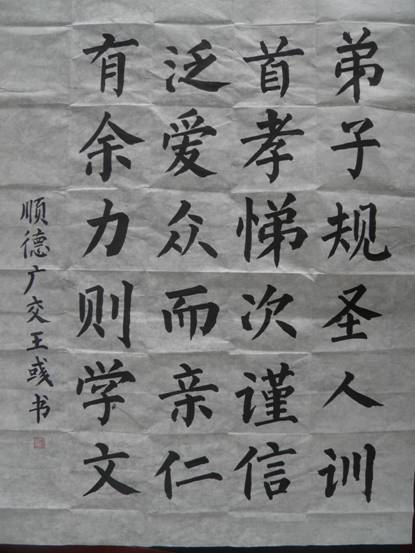 弟子规圣人训
首孝悌次谨信
泛爱众而亲仁
有余力则学文
顺德广交王彧书